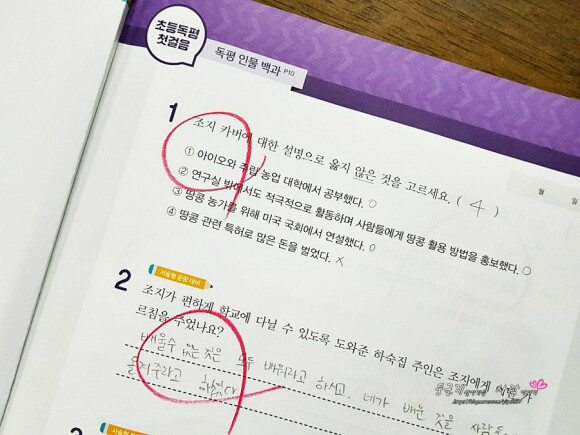 초등독평
첫걸음
독평 인물 백과 P10
월 일
1 조지 카버에 대한 설명으로 옳지 않은 것을 고르세요. ( 4 )
① 아이오와 주립 농업 대학에서 공부했다. ○
② 연구실 밖에서도 적극적으로 활동하며 사람들에게 땅콩 활용 방법을 홍보했다. ○
③ 땅콩 농가를 위해 미국 국회에서 연설했다. ○
④ 땅콩 관련 특허로 많은 돈을 벌었다. ×
2 서술형 문항 대비
조지가 편하게 학교에 다닐 수 있도록 도와준 하숙집 주인은 조지에게
르침을 주었나요?
배울수 있는 것은 모두 배워라고 하시고, 네가 배운 것을
돌려주라고 하셨다
서술형 문항 대비